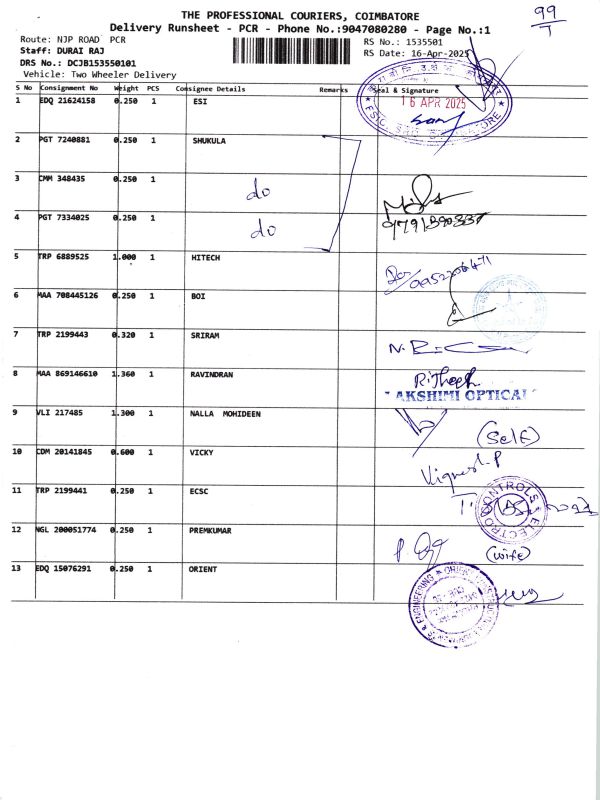 THE PROFESSIONAL COURIERS, COIMBATORE
99/T
Delivery Runsheet - PCR - Phone No.:9047080280 - Page No.:1
Route: NJP ROAD PCR
RS No.: 1535501
Staff: DURAI RAJ
RS Date: 16-Apr-2025
DRS No.: DCJB153550101
Vehicle: Two Wheeler Delivery
S No Consignment No Weight PCS Consignee Details Remarks Seal & Signature
1 EDQ 21624158 0.250 1 ESI
16 APR 2025
2 PGT 7240881 0.250 1 SHUKULA
3 CMM 348435 0.250 1 do
4 PGT 7334025 0.250 1 do
5 TRP 6889525 1.000 1 HITECH
6 MAA 708445126 0.250 1 BOI
7 TRP 2199443 0.320 1 SRIRAM
8 MAA 869146610 1.360 1 RAVINDRAN
AKSHIMI OPTICAL
9 VLI 217485 1.300 1 NALLA MOHIDEEN (Self)
10 CDM 20141845 0.600 1 VICKY Vignesh.P
11 TRP 2199441 0.250 1 ECSC
ELECTRO CONTROLS
12 NGL 200051774 0.250 1 PREMKUMAR (wife)
13 EDQ 15076291 0.250 1 ORIENT